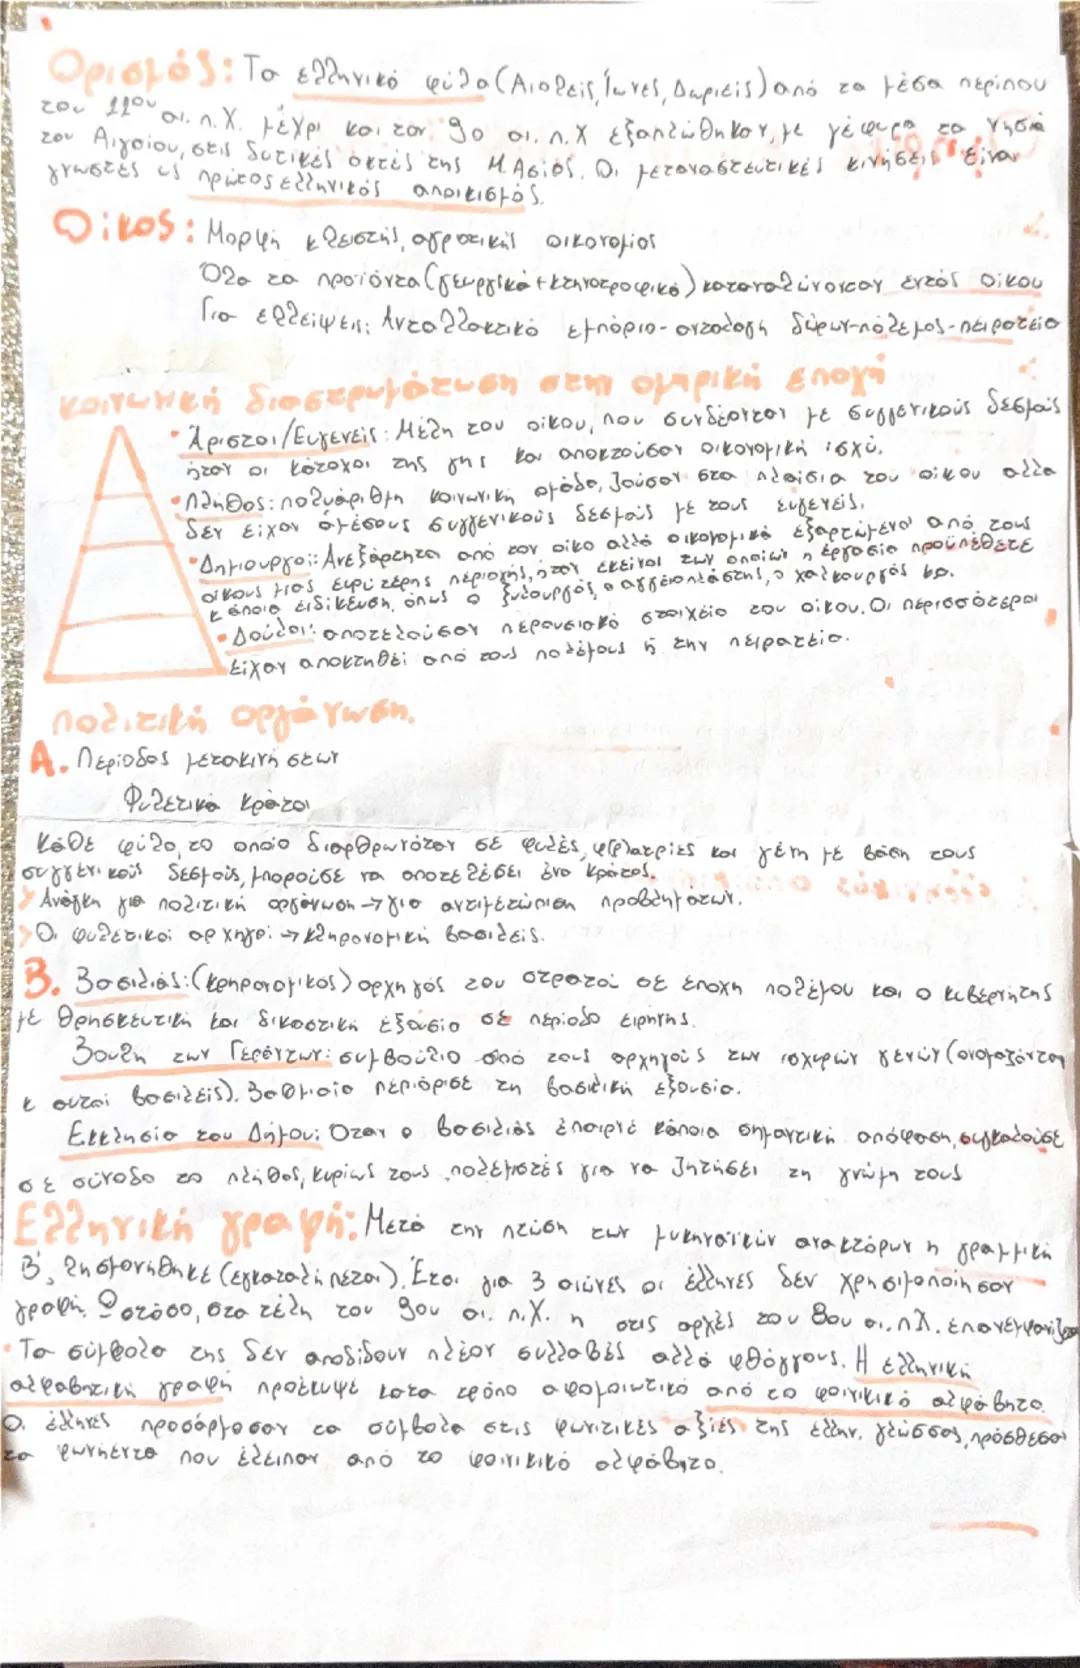 Ορισμός: Τα ελληνικά φύλα (Αιολείς, Ίωνες, Δωριείς) από τα μέσα περίπου
του 11ου αι. π.Χ. μέχρι και τον 9ο αι. π.Χ εξαπλώθηκαν, με γέφυρα τα νησιά
του Αιγαίου, στις δυτικές ακτές της Μ. Ασίας. Οι μεταναστευτικές κινήσεις είναι
γνωστές ως πρώτος ελληνικός αποικισμός.
Οίκος: Μορφή κλειστής, αγροτικής οικονομίας
Όλα τα προϊόντα (γεωργικά + κτηνοτροφικά) καταναλώνονταν εντός οίκου
Για ελλείψεις: Ανταλλακτικό εμπόριο - ανταλλαγή δώρων - πόλεμος - πειρατεία
Κοινωνική διαστρωμάτωση στην ομηρική εποχή
• Άριστοι/Ευγενείς: Μέλη του οίκου, που συνδέονται με συγγενικούς δεσμούς
ήταν οι κάτοχοι της γης και αποκτούσαν οικονομική ισχύ.
• Πλήθος: πολυάριθμη κοινωνική ομάδα, ζούσαν στα πλαίσια του οίκου αλλά
δεν είχαν άμεσους συγγενικούς δεσμούς με τους ευγενείς.
• Δημιουργοί: Ανεξάρτητοι από τον οίκο αλλά οικονομικά εξαρτώμενοι από τους
οίκους μιας ευρύτερης περιοχής, ήταν εκείνοι των οποίων η εργασία προϋπέθετε
κάποια ειδίκευση, όπως ο ξυλουργός, ο αγγειοπλάστης, ο χαλκουργός κα.
• Δούλοι: αποτελούσαν περουσιακό στοιχείο του οίκου. Οι περισσότεροι
είχαν αποκτηθεί από τους πολέμους ή την πειρατεία.
Πολιτική οργάνωση.
Α. Περίοδος μετακινήσεων
Φυλετικά κράτοι
Κάθε φύλο, το οποίο διαρθρωνόταν σε φυλές, φ(ρ)ατρίες και γένη με βάση τους
συγγενικούς δεσμούς, μπορούσε να αποτελέσει ένα κράτος.
> Ανάγκη για πολιτική οργάνωση → για αντιμετώπιση προβλημάτων.
> Οι φυλετικοί αρχηγοί → κληρονομική βασιλείς.
Β. Βασιλιάς: (κληρονομικός) αρχηγός του στρατού σε εποχή πολέμου και ο κυβερνήτης
με θρησκευτική και δικαστική εξουσία σε περίοδο ειρήνης.
Βουλή των Γερόντων: συμβούλιο από τους αρχηγούς των ισχυρών γενών (ονομάζονται
κ αυτοί βασιλείς). Βαθμιαία περιόρισε τη βασιλική εξουσία.
Εκκλησία του Δήμου: Όταν ο βασιλιάς έπαιρνε κάποια σημαντική απόφαση, συγκαλούσε
σε σύνοδο το πλήθος, κυρίως τους πολεμιστές για να ζητήσει τη γνώμη τους
Ελληνική γραφή: Μετά την πτώση των μυκηναϊκών ανακτόρων η γραμμική
Β', λησμονήθηκε (εγκαταλήπεται). Έτσι για 3 αιώνες οι έλληνες δεν χρησιμοποίησαν
γραφή. Ωστόσο, στα τέλη του 9ου αι. π.Χ. η στις αρχές του 8ου αι. π.Χ. επανεμφανίζεται
• Τα σύμβολα της δεν αποδίδουν πλέον συλλαβές αλλά φθόγγους. Η ελληνική
αλφαβητική γραφή προέκυψε κατά τρόπο αφομοιωτικό από το φοινικικό αλφάβητο.
Οι έλληνες προσάρμοσαν τα σύμβολα στις φωνιτικές αξίες της έλλην. γλώσσας, πρόσθεσαν
τα φωνήεντα που έλειπαν από το φοινικικό αλφάβητο.